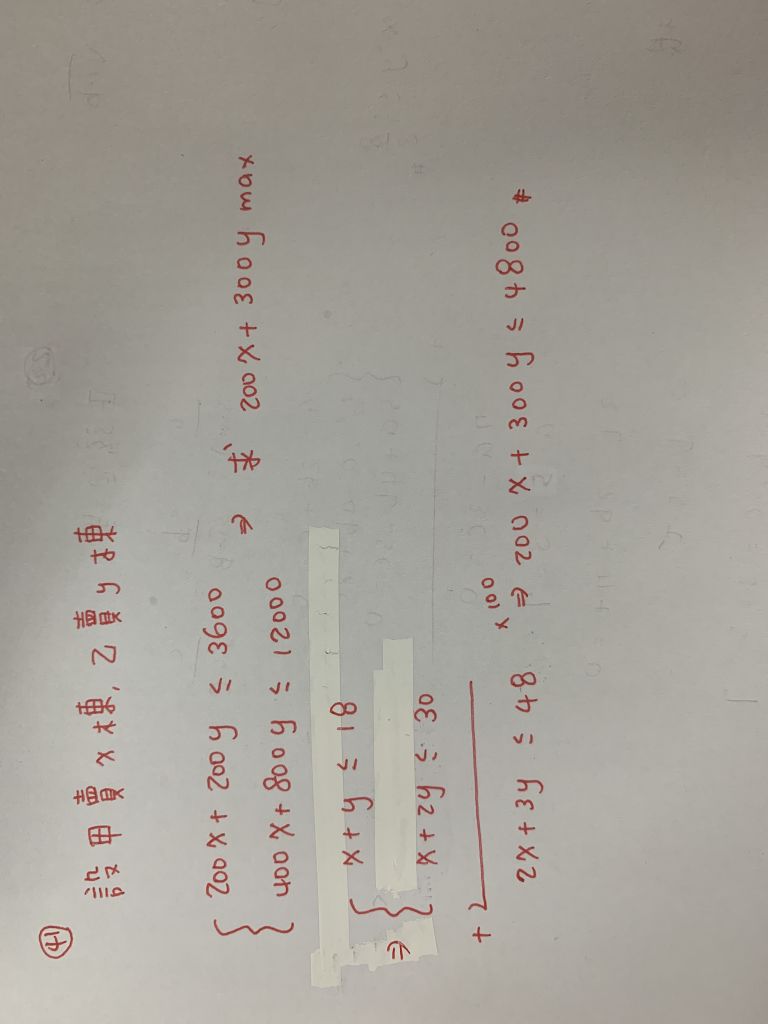 ㊶ 設甲賣 x 棟, 乙賣 y 棟
{ 200x + 200y ≤ 3600
400x + 800y ≤ 12000 ⇒ 求 200x + 300y max
⇒ { x + y ≤ 18
x + 2y ≤ 30
+
2x + 3y ≤ 48 ×100 ⇒ 200x + 300y ≤ 4800 #